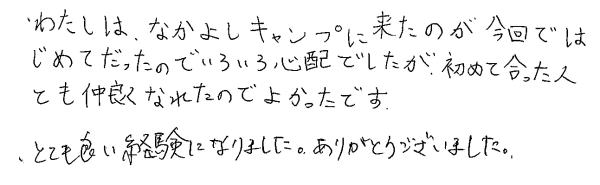 ・わたしは、なかよしキャンプに来たのが今回では
じめてだったのでいろいろ心配でしたが、初めて合った人
とも仲良くなれたのでよかったです。
、とても良い経験になりました。ありがとうございました。